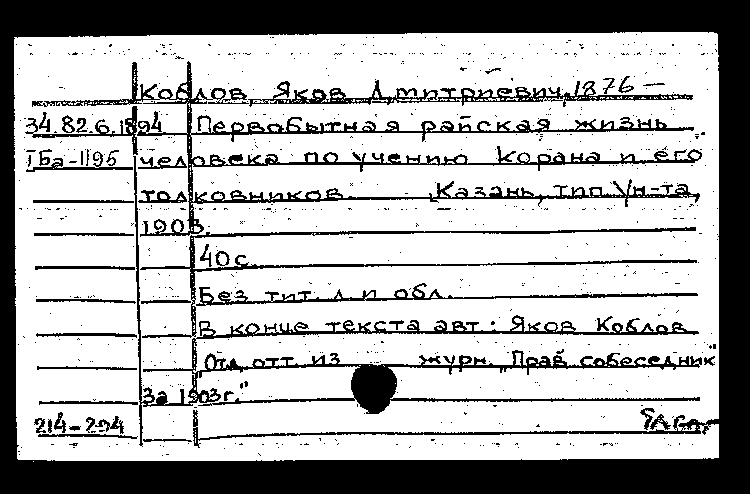 Коблов, Яков Дмитриевич, 1876 —
34.82.6.1894 Первобытная райская жизнь
IБа-1195 человека по учению Корана и его
толковников. Казань, тип. Ун-та,
1903.
40 с.
Без тит. л. и обл.
В конце текста авт: Яков Коблов
"Отд. отт. из журн. "Прав. собеседник"
За 1903 г."
214-294